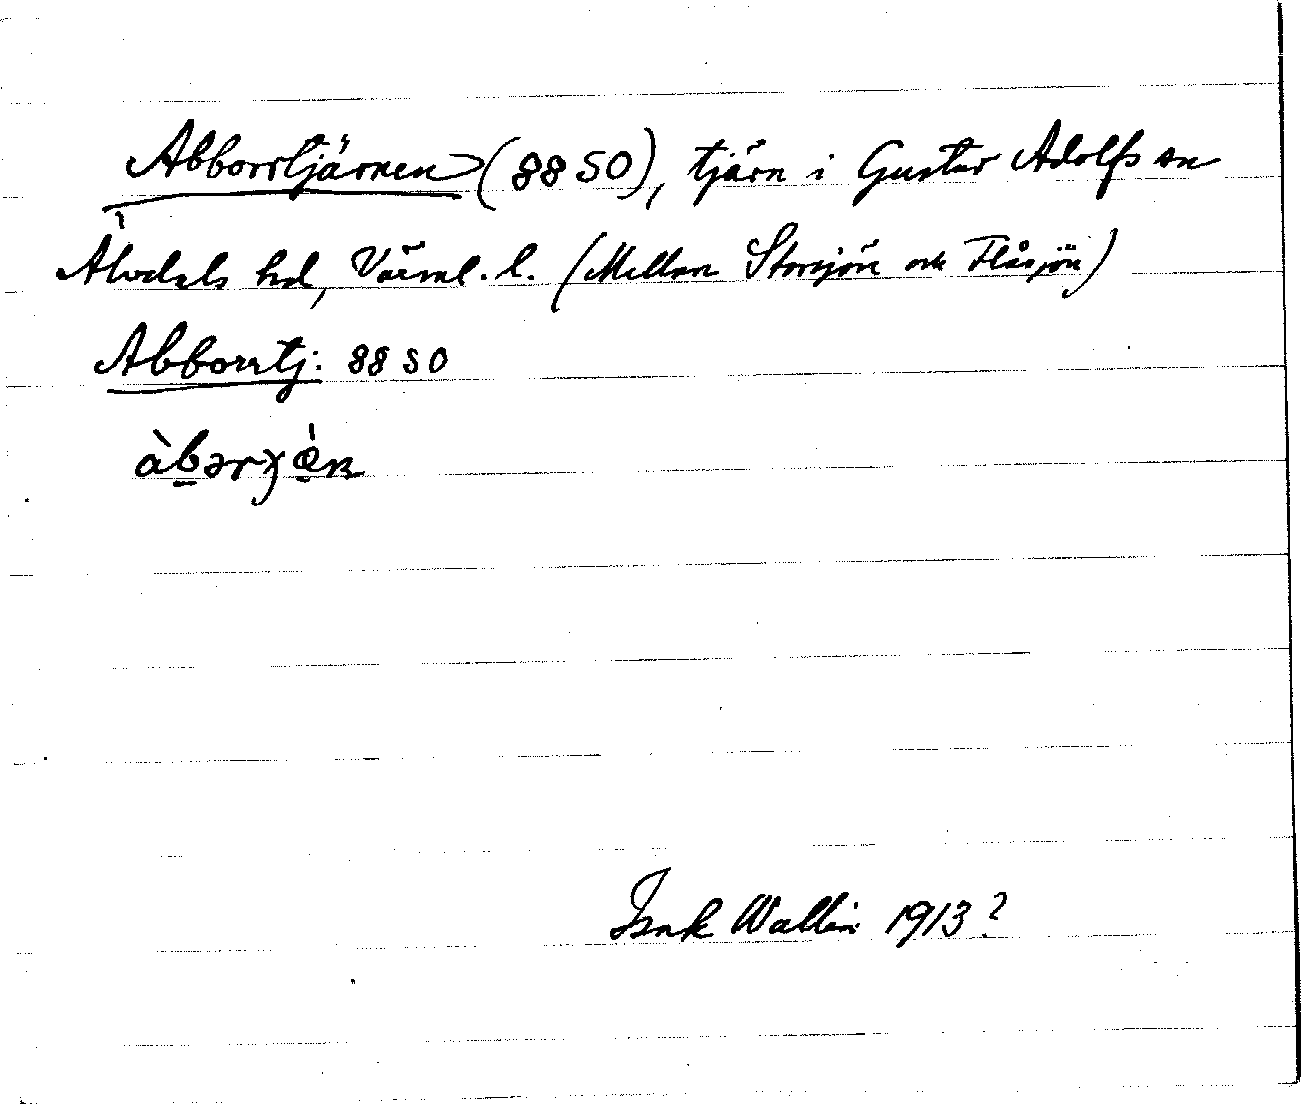 Abborrtjärnen (88 SO), tjärn i Gustav Adolfs sn
Älvdals hd, Värml. l. (Mellan Storsjön och Flåsjön)
Abborrtj. 88 SO
Isak Wallin 1913?